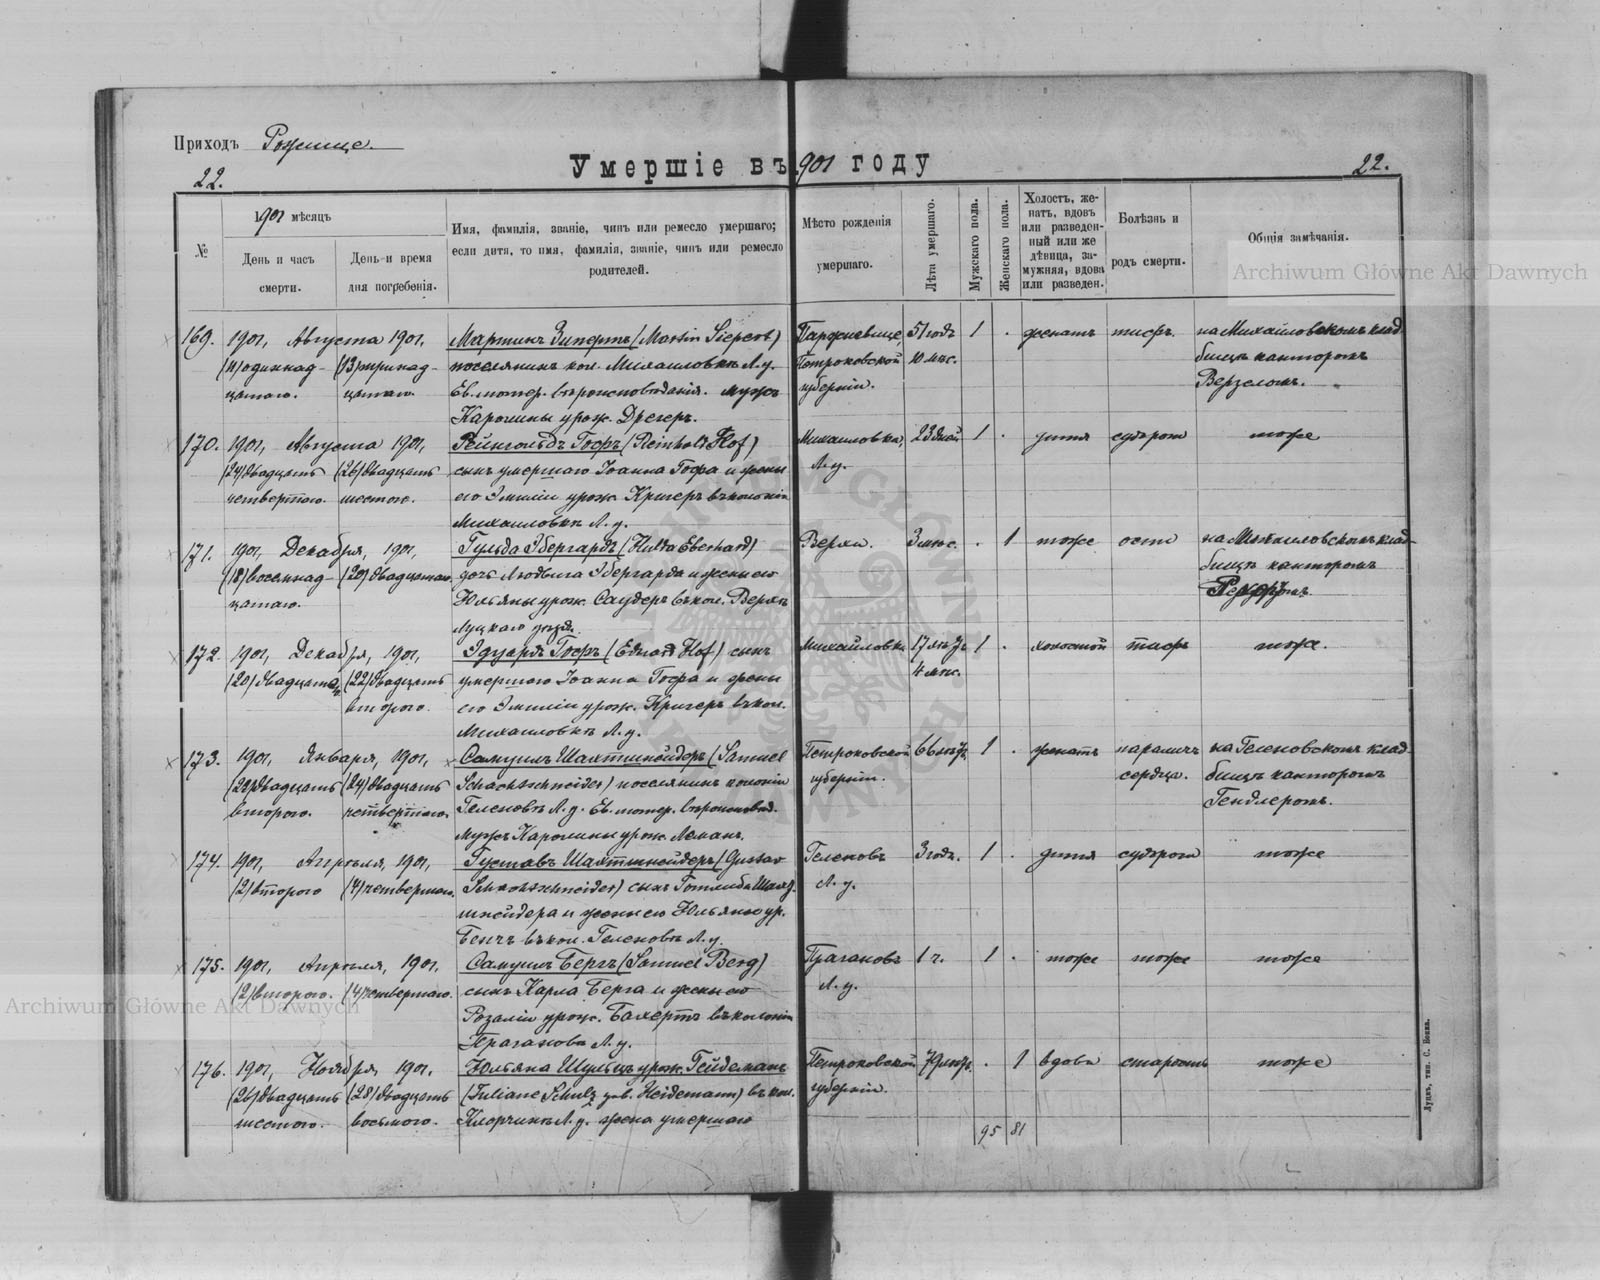 Приходъ Рожище.
Умершіе въ 1901 году
22.
22.
№
1901 мѣсяцъ
День и часъ смерти.
День и время дня погребенія.
Имя, фамилія, званіе, чинъ или ремесло умершаго;
если дитя, то имя, фамилія, званіе, чинъ или ремесло
родителей.
Мѣсто рожденія
умершаго.
Лѣта умершаго.
Мужскаго пола.
Женскаго пола.
Холостъ, же-
натъ, вдовъ
или разведен-
ный или же
дѣвица, за-
мужняя, вдова
или разведен.
Болѣзнь и
родъ смерти.
Общія замѣчанія.
Archiwum Główne Akt Dawnych
169. 1901, Августа 1901, Мартинъ Зипертъ (Martin Siepert) 51 годъ 1 . женатъ тифъ. на Михайловскомъ клад-
(11) одиннад- (13) тринад- поселянинъ кол. Михаиловкѣ Л. у. Петроковской 10 мѣс. бищѣ канторомъ
цатаго. цатаго. Ев. лютер. вѣроисповѣданія. мужъ губерніи.
Каролины урож. Дрегеръ.
170. 1901, Августа 1901, Рейнгольдъ Гофъ (Reinhold Hof) Михаиловка, 23 дней 1 . дитя судороги тоже
(24) двадцать (26) двадцать сынъ умершаго Іоанна Гофа и жены Л. у.
четвертаго. шестого. его Эмиліи урож. Кригеръ въ колоніи
Михаиловкѣ Л. у.
171. 1901, Декабря, 1901, Гульда Эбергардъ (Hulda Eberhard) Верхи. 3 мѣс. . 1 тоже оспи на Михаиловскомъ клад-
(18) восемнад- (20) двадцатаго. дочь Людвига Эбергарда и жены его бищѣ канторомъ
цатаго. Юльяны урож. Саудеръ въ кол. Верхи
Луцкаго уѣзда.
172. 1901, Декабря, 1901, Эдуардъ Гофъ (Eduard Hof) сынъ Михайловка 17 лѣтъ 1 . холостой тифъ тоже.
(20) двадцатаго (22) двадцать умершаго Іоанна Гофа и жены 4 мѣс.
второго. его Эмиліи урож. Кригеръ въ кол.
Михаиловкѣ Л. у.
173. 1901, Января, 1901, Самуилъ Шахтшнейдеръ (Samuel Петроковской 66 лѣтъ 1 . женатъ параличъ на Геленовскомъ клад-
(22) двадцать (24) двадцать Schachtschneider) поселянинъ колоніи губерніи. сердца. бищѣ канторомъ
второго. четвертаго. Геленовъ Л. у. Ев. лютер. вѣроисповѣд. Гендлеромъ.
Мужъ Каролины урож. Леманъ.
174. 1901, Апрѣля, 1901, Густавъ Шахтшнейдеръ (Gustav Геленовъ 3 годъ. 1 . дитя судороги тоже
(2) второго (4) четвертаго. Schachtschneider) сынъ Готлиба Шахт- Л. у.
шнейдера и жены его Юльяны ур.
въ кол. Геленовъ Л. у.
175. 1901, Апрѣля, 1901, Самуилъ Бергъ (Samuel Berg) 1 ч. 1 . тоже тоже тоже
(2) второго. (4) четвертаго. сынъ Карла Берга и жены его Л. у.
Розаліи урож. въ колоніи
Л. у.
176. 1901, Ноября, 1901, Юльяна Шульцъ урож. Гейдеманъ Петроковской 79 лѣтъ. . 1 вдова старость тоже
(26) двадцать (28) двадцать (Juliane Schulz geb. Heidemann) въ кол. губерніи.
шестого. восьмого. Л. у. жена умершаго
95 81
Archiwum Główne Akt Dawnych
Луцкъ, тип. С. Бокка.